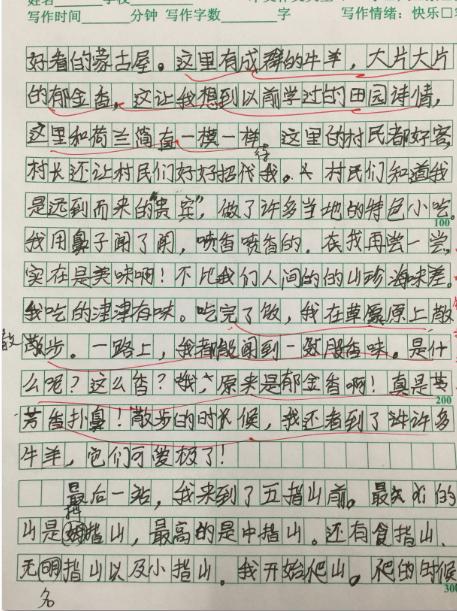 姓名 学校
写作时间 分钟 写作字数 字 写作情绪：快乐□
好看的蒙古屋。这里有成群的牛羊，大片大片
的郁金香，这让我想到以前学过的田园诗情，
这里和荷兰简直一模一样。这里的村民都好客，
村长还让村民们好好招待我。村民们知道我
是远到而来的“贵宾”，做了许多当地的特色小吃。
100
我用鼻子闻了闻，喷香喷香的，在我再尝一尝，
实在是美味啊！不比我们人间的的山珍海味差。
我吃的津津有味。吃完了饭，我在草原上散
散步。一路上，我都闻到一股香味。是什
么呢？这么香？哦，原来是郁金香啊！真是芳
200
芳香扑鼻！散步的时候，我还看到了许多
牛羊，它们可爱极了！
最后一站，我来到了五指山前。最大的
山是拇指山，最高的是中指山。还有食指山、
无名指山以及小指山。我开始爬山。爬的时候
300